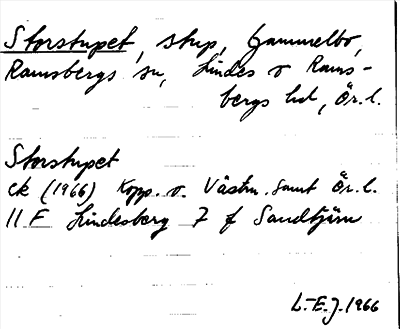 Storstupet, stup, Gammelbo,
Ramsbergs sn, Lindes o Rams-
bergs hd, Ör. l.
Storstupet
ek (1966) Kopp. o. Västm. samt Ör. l.
11 F Lindesberg 7 f Sandtjärn
L-E.J. 1966